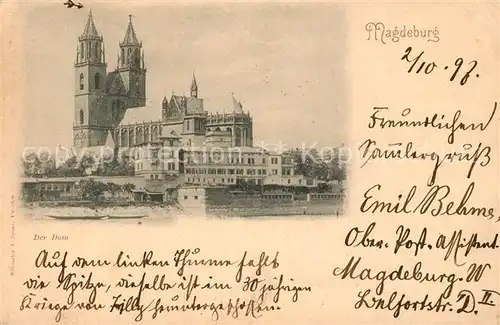 Magdeburg
2/10. 97.
Freundlichen
Sammlergruß
Emil Behme,
Ober-Post-Assistent
Magdeburg-W
Belfortstr.
Der Dom
Auf dem linken Thurme fehlt
die Spitze, dieselbe ist im 30 jährigen
Kriege von Tilly heruntergeschossen.